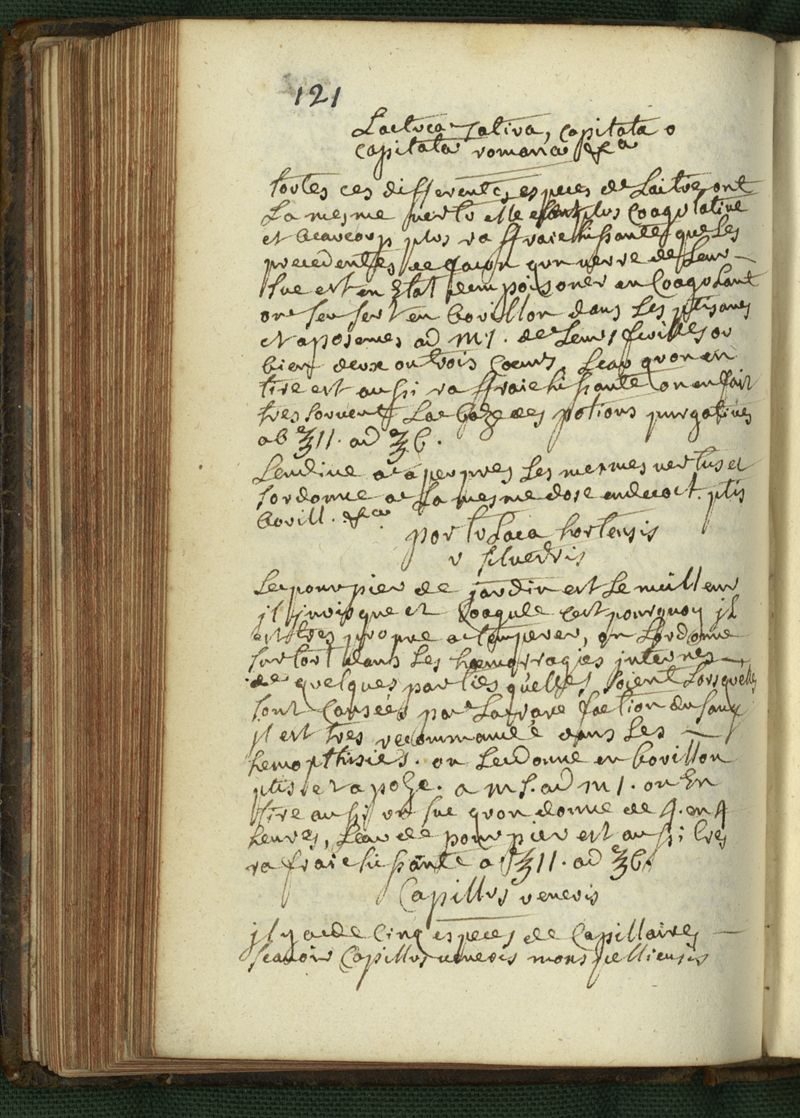 121
Lactuca sativa, capitata o
capitata romana &ca
toutes ces differentes especes de Laitue ont
La mesme vertu elle sont plus Coagulative
et beaucoup plus raffraichissantes que Les
precedentes de façon qun verre de Leur
suc est en Etat dempoisoner en Coagulant
on sen sert en bouillon dans Les ptisanes
et aposemes ad m 1. de Leurs feuilles ou
bien deux ou trois Coeurs, Leau quon en
tire est aussi raffraichissante on en fait
tres souvent La baze des potions purgatives
ab ℥ 11. ad ℥ 6.
Lendive a a peu pres Les mesmes vertus et
sordonne a La mesme dose en decoct. ptis
bovill. &ca
portulaca hortensis
v silvestris
Le pourpier de jardin est Le meilleur
jl jnvisque et Coagule cest pourquoy jl
est tres propre a temperer, on Lordonne
surtout dans Les hæmorragies jnternes
de quelques parties quelles soient Lorsquelles
sont Causées par La rarefaction du sang
jl est tres recommandé dans Les
hemopthisies. on Le donne en bouillon
ptis et apoze. a m s. ad m 1. on En
tire aussi un suc quon donne de 4. en 4
heures, Leau de pourpier est aussi tres
rafraichissante a ℥ 11. ad ℥ 6.
Capillus veneris
jl y a de Cinq especes de Capillaires
scavoir Capillus veneris monspelliensis